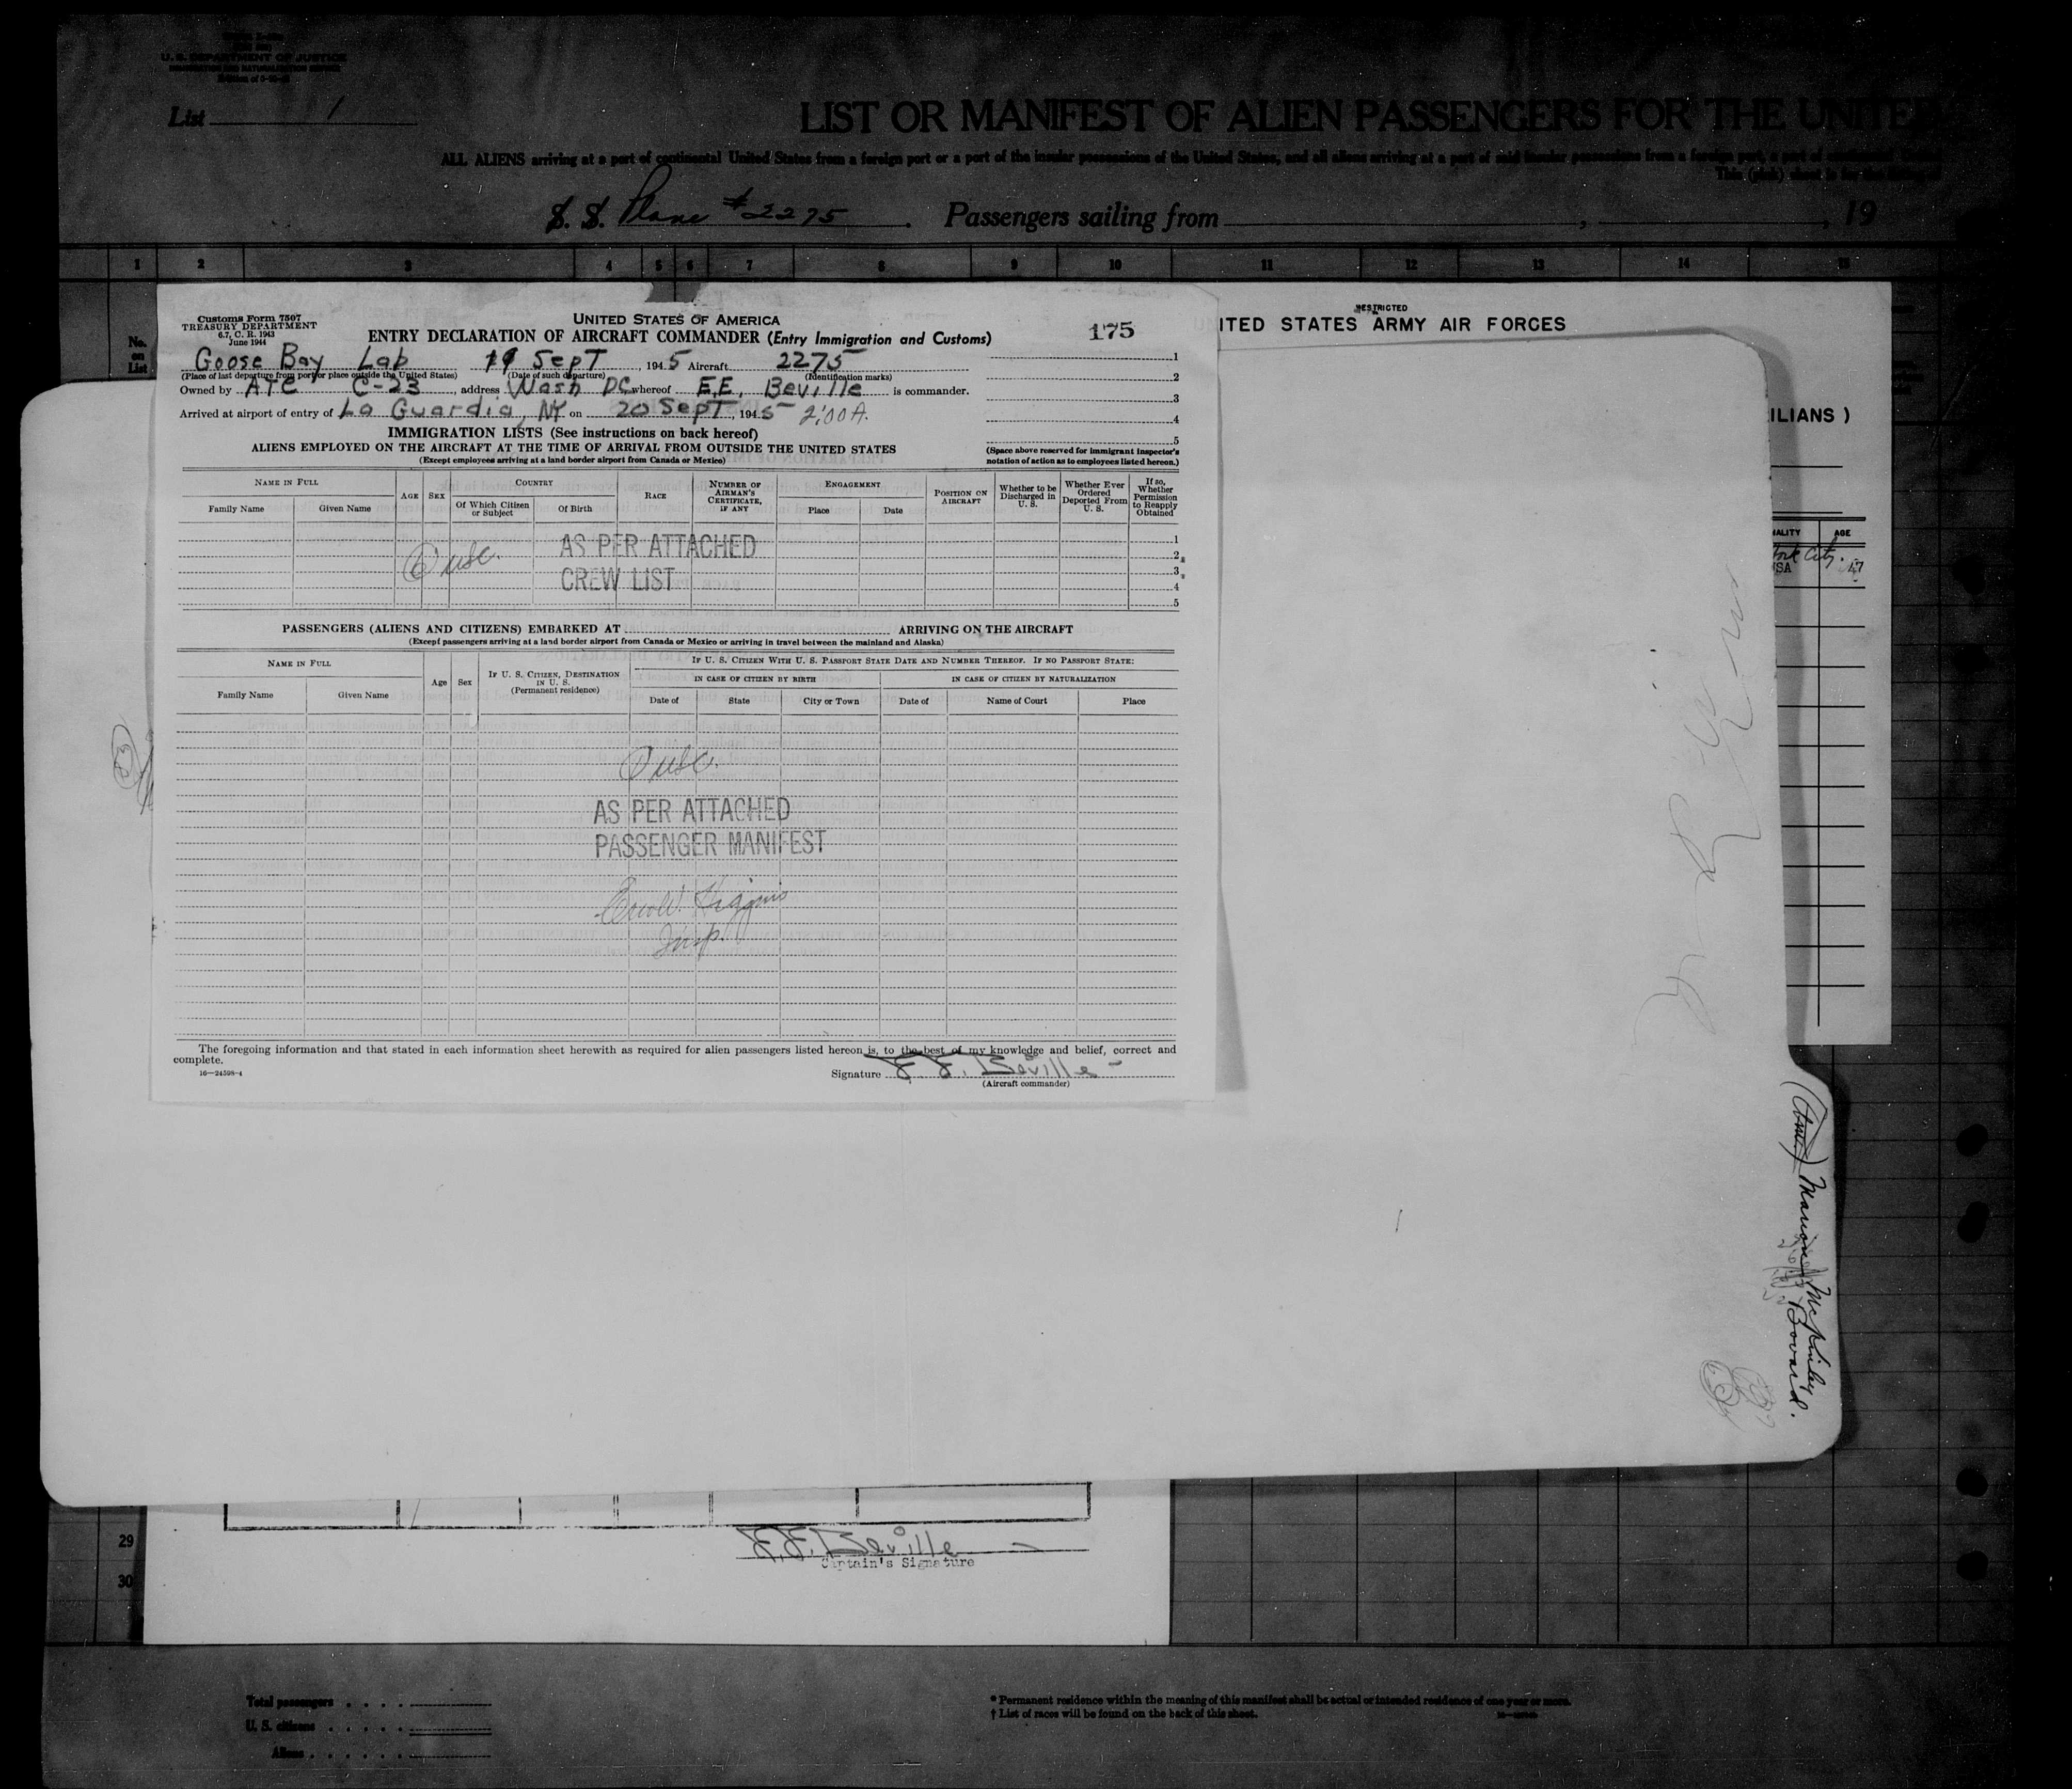 U. S. DEPARTMENT OF JUSTICE
List 1
LIST OR MANIFEST OF ALIEN PASSENGERS FOR THE UNITED
ALL ALIENS arriving at a port of continental United States from a foreign port or a port of the insular possessions of the United States, and all aliens arriving at a port of said insular possessions from a foreign port, a port of
S. S. Plane #2275. Passengers sailing from , , 19
1 2 3 4 5 6 7 8 9 10 11 12 13 14 15
No. on List
RESTRICTED
ITED STATES ARMY AIR FORCES
ILIANS )
ALITY AGE
York City.
SA 47
Customs Form 7507
TREASURY DEPARTMENT
6.7, C. R. 1943
June 1944
UNITED STATES OF AMERICA
ENTRY DECLARATION OF AIRCRAFT COMMANDER (Entry Immigration and Customs)
175
Goose Bay Lab 19 Sept, 1945 Aircraft 2275
(Place of last departure from port or place outside the United States) (Date of such departure) (Identification marks)
Owned by ATC C-23, address Wash DC whereof E.E. Beville is commander.
Arrived at airport of entry of La Guardia, NY on 20 Sept, 1945 2:00 A.
1
2
3
4
5
IMMIGRATION LISTS (See instructions on back hereof)
ALIENS EMPLOYED ON THE AIRCRAFT AT THE TIME OF ARRIVAL FROM OUTSIDE THE UNITED STATES
(Except employees arriving at a land border airport from Canada or Mexico)
(Space above reserved for immigrant inspector's notation of action as to employees listed hereon.)
NAME IN FULL AGE SEX COUNTRY RACE NUMBER OF AIRMAN'S CERTIFICATE, IF ANY ENGAGEMENT POSITION ON AIRCRAFT Whether to be Discharged in U. S. Whether Ever Ordered Deported From U. S. If so, Whether Permission to Reapply Obtained
Family Name Given Name Of Which Citizen or Subject Of Birth Place Date
1
2
3
4
5
AS PER ATTACHED
CREW LIST
PASSENGERS (ALIENS AND CITIZENS) EMBARKED AT ARRIVING ON THE AIRCRAFT
(Except passengers arriving at a land border airport from Canada or Mexico or arriving in travel between the mainland and Alaska)
NAME IN FULL Age Sex IF U. S. CITIZEN, DESTINATION IN U. S. (Permanent residence) IF U. S. CITIZEN WITH U. S. PASSPORT STATE DATE AND NUMBER THEREOF. IF NO PASSPORT STATE:
IN CASE OF CITIZEN BY BIRTH IN CASE OF CITIZEN BY NATURALIZATION
Family Name Given Name Date of State City or Town Date of Name of Court Place
AS PER ATTACHED
PASSENGER MANIFEST
Higgins
Insp.
The foregoing information and that stated in each information sheet herewith as required for alien passengers listed hereon is, to the best of my knowledge and belief, correct and
complete.
16—24598-4
Signature E. E. Beville
(Aircraft commander)
Bovard.
29
30
E.E. Beville
Captain's Signature
Total passengers
U. S. citizens
Aliens
* Permanent residence within the meaning of this manifest shall be actual or intended residence of one year or more.
† List of races will be found on the back of this sheet.